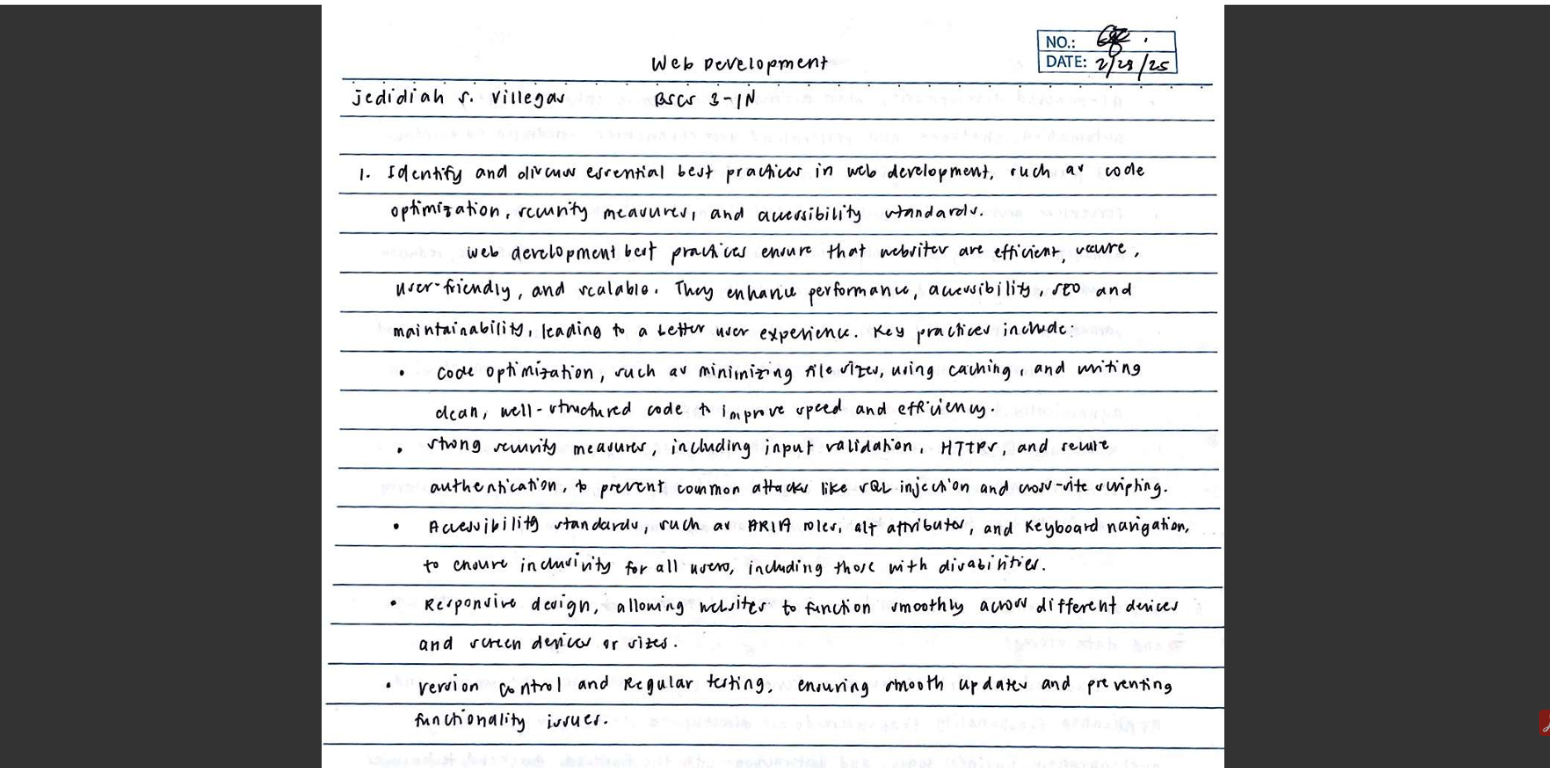 Web Development
NO.:
DATE: 2/28/25
Jedidiah S. Villegas BSCS 3-1N
1. Identify and discuss essential best practices in web development, such as code
optimization, security measures, and accessibility standards.
Web development best practices ensure that websites are efficient, secure,
user-friendly, and scalable. They enhance performance, accessibility, SEO and
maintainability, leading to a better user experience. Key practices include:
• Code optimization, such as minimizing file sizes, using caching, and writing
clean, well-structured code to improve speed and efficiency.
• Strong security measures, including input validation, HTTPS, and secure
authentication, to prevent common attacks like SQL injection and cross-site scripting.
• Accessibility standards, such as ARIA roles, alt attributes, and Keyboard navigation,
to ensure inclusivity for all users, including those with disabilities.
• Responsive design, allowing websites to function smoothly across different devices
and screen devices or sizes.
• Version control and Regular testing, ensuring smooth updates and preventing
functionality issues.